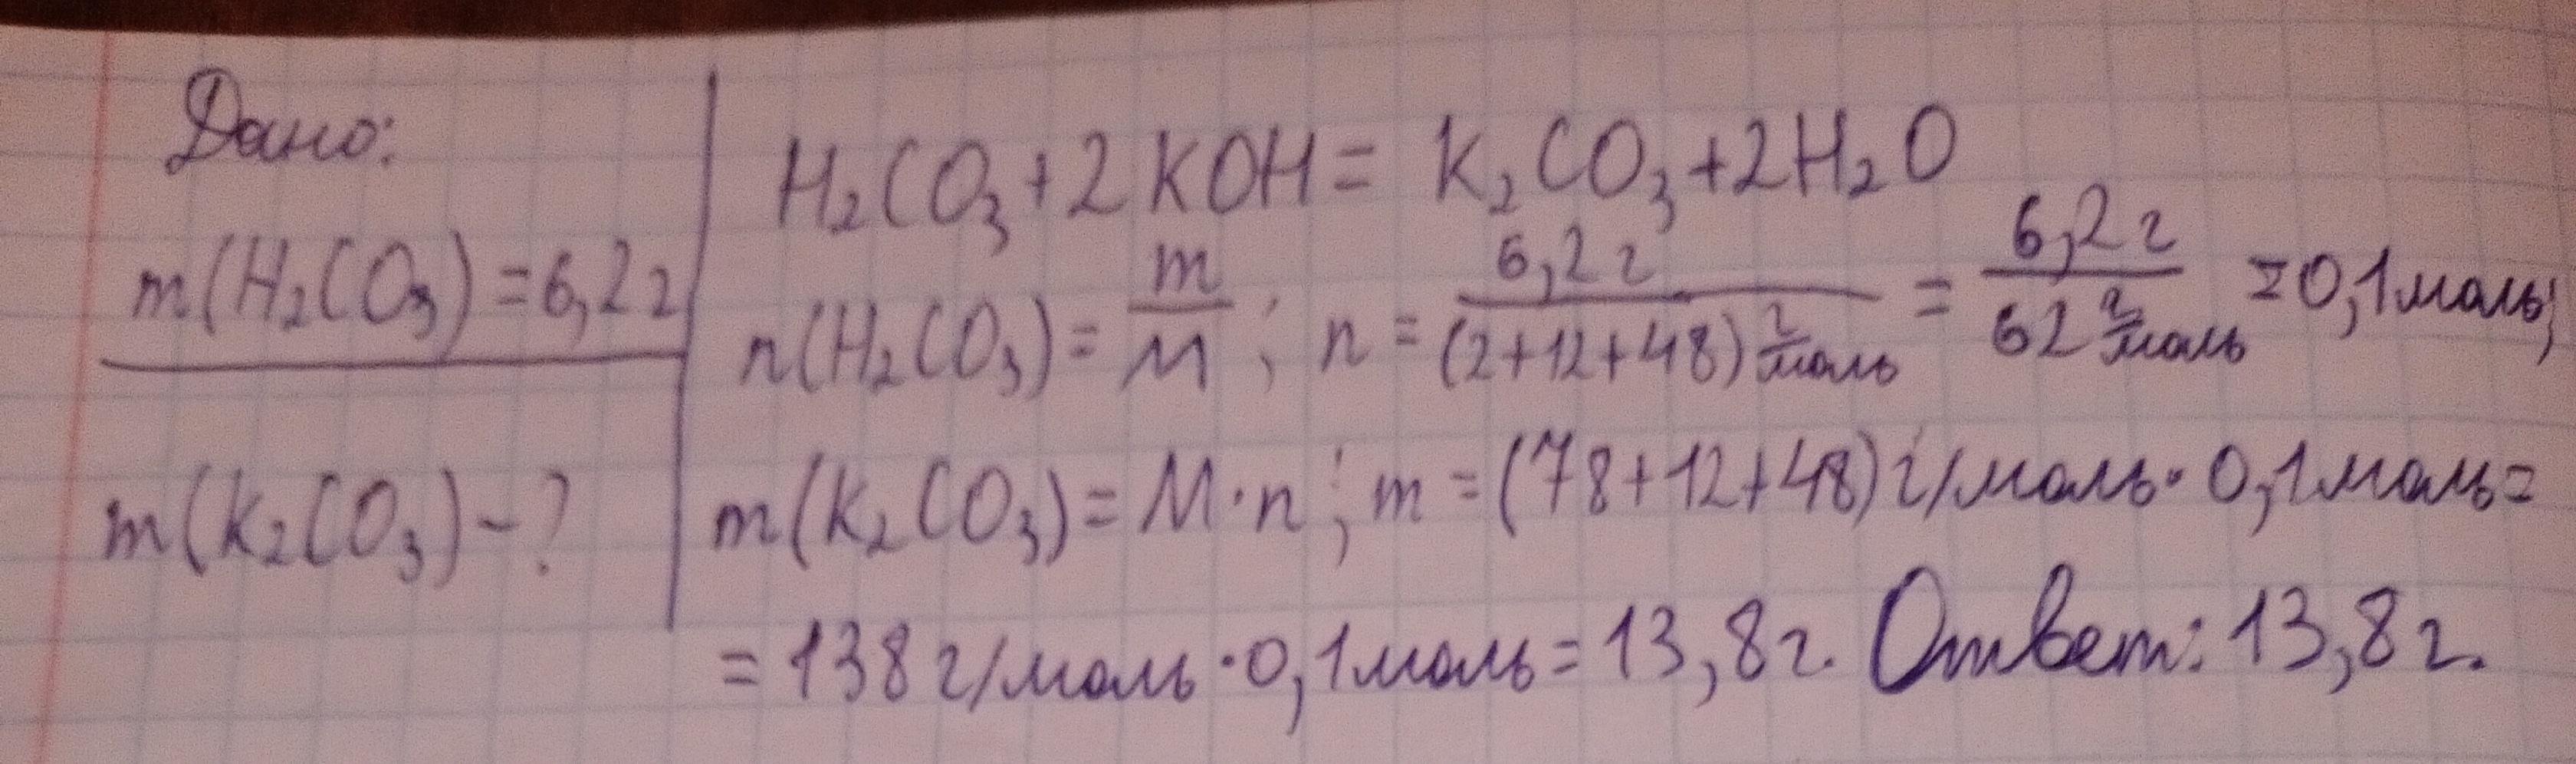 Дано:
m(H₂CO₃)=6,2г
m(K₂CO₃)-?
H₂CO₃+2KOH=K₂CO₃+2H₂O
n(H₂CO₃)=m/M; n=6,2г/(2+12+48)г/моль=6,2г/62г/моль=0,1моль;
m(K₂CO₃)=M·n; m=(78+12+48)г/моль·0,1моль=
=138г/моль·0,1моль=13,8г. Ответ: 13,8г.